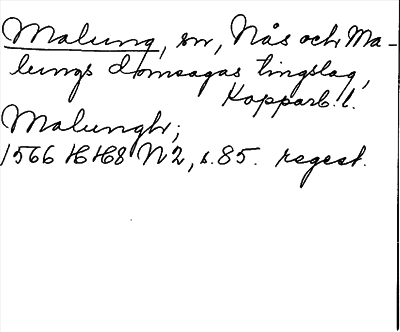 Malung, sn, Nås och Ma-
lungs domsagas tingslag,
Kopparb. l.
Malungh;
1566 HH8 N2, s. 85. regest.